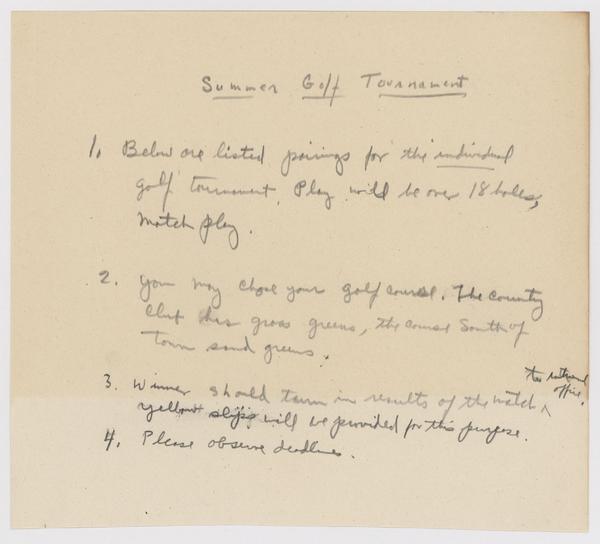 Summer Golf Tournament
1. Below are listed pairings for the individual
golf tournament. Play will be over 18 holes,
match play.
2. You may chose your golf course. The country
Club has grass greens, the course South of
town sand greens.
to
office.
3. Winner should turn in results of the match
yellow slips will be provided for this purpose.
4. Please observe deadlines.